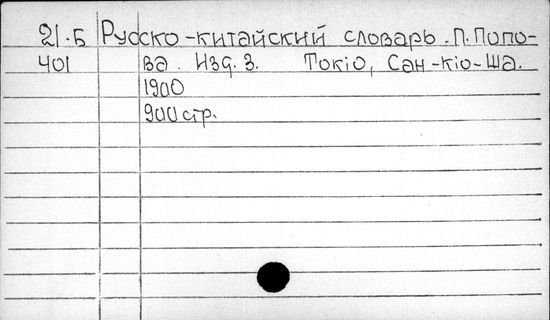 21.Б Русско-китайский словарь. П. Попо-
401 ва. Изд. 3. Токіо, Сан-кіо-ша.
1900
900 стр.